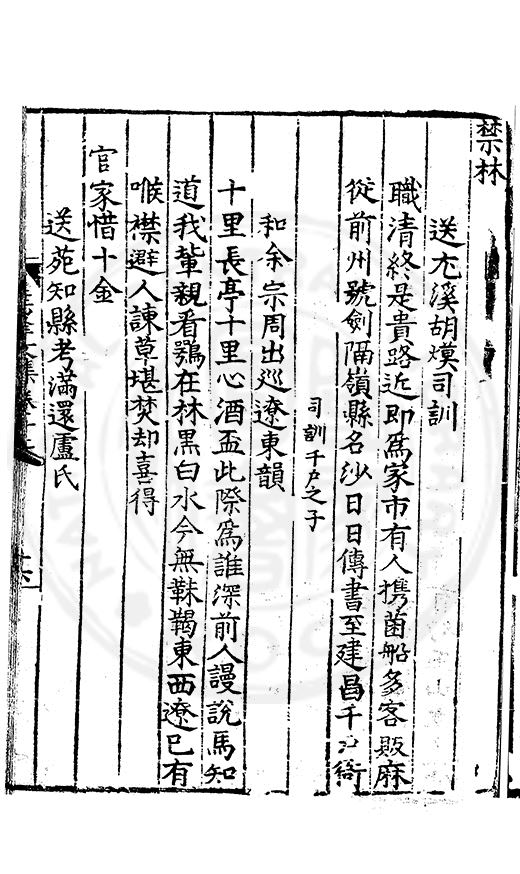 禁林
送尢溪胡熯司訓
職清終是貴路近即爲家市有人携菌船多客販麻
從前州號劍隔嶺縣名沙日日傳書至建昌千戶衙
司訓千戶之子
和余宗周出廵遼東韻
十里長亭十里心酒盃此際爲誰深前人謾說馬知
道我輩親看鶚在林黑白水今無靺鞨東西遼已有
喉襟避人諫草堪焚却喜得
官家惜十金
送苑知縣考滿還盧氏